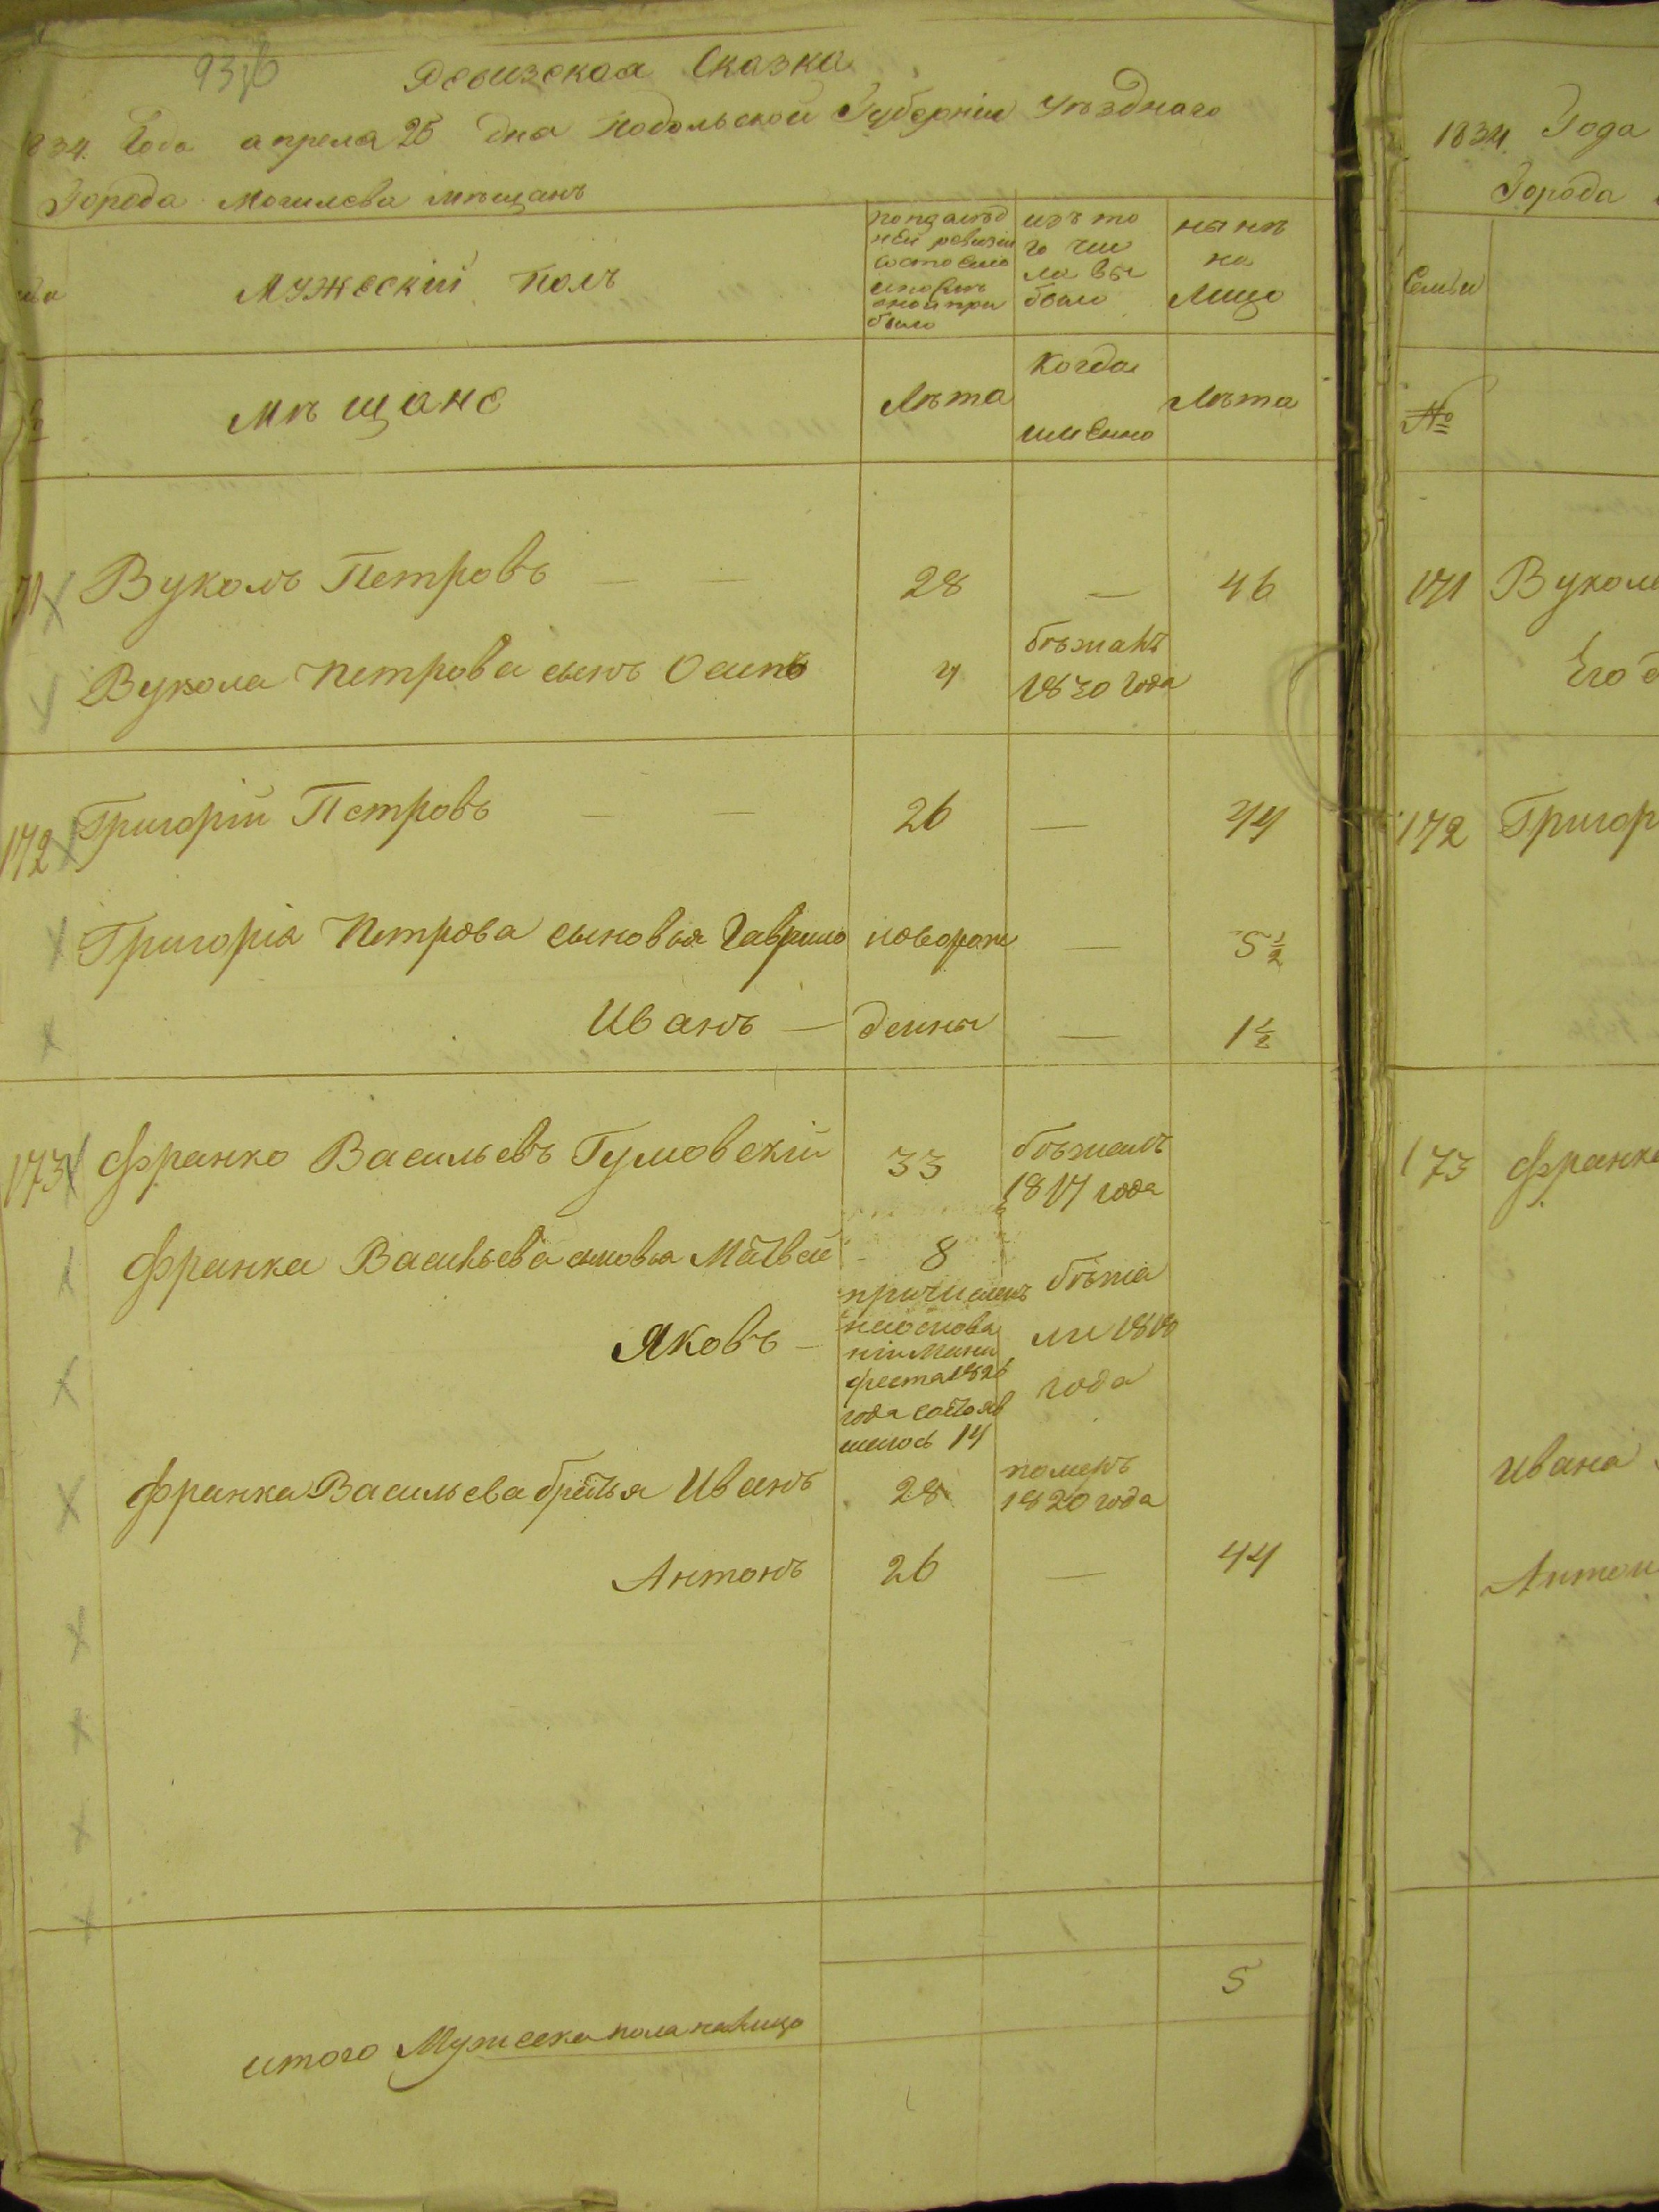 Ревизская Сказка
1834. Года апреля 25 дня Подольской Губерніи Уѣзднаго
Города Могилева мѣщанъ
Мужескій полъ
по последней ревизіи состояло и после оной прибыло
изъ того числа выбыло
нынѣ на лицо
Мѣщане
Лѣта
Когда именно
Лѣта
171 Вуколъ Петровъ — — 28 — 46
Вукола Петрова сынъ Осипъ 4 бѣжалъ 1830 года
172 Григорій Петровъ — — 26 — 44
Григорія Петрова сыновья Гаврило новорож — 5 1/2
Иванъ — денны — 1 1/2
173 Франко Васильевъ Гумовскій 33 бѣжалъ 1817 года
Франка Васильева сыновья Матвей 8 бѣжа
Яковъ — причисленъ на основаніи Манифеста 1826 года состоявшегося 14 ли 1818 года
Франка Васильева братья Иванъ 28 померъ 1820 года
Антонъ 26 — 44
итого Мужеска пола налицо 5
1834 Года
Города
Семьи
№
171 Вукола
Его
172 Григор
173 Франка
Ивана
Антон